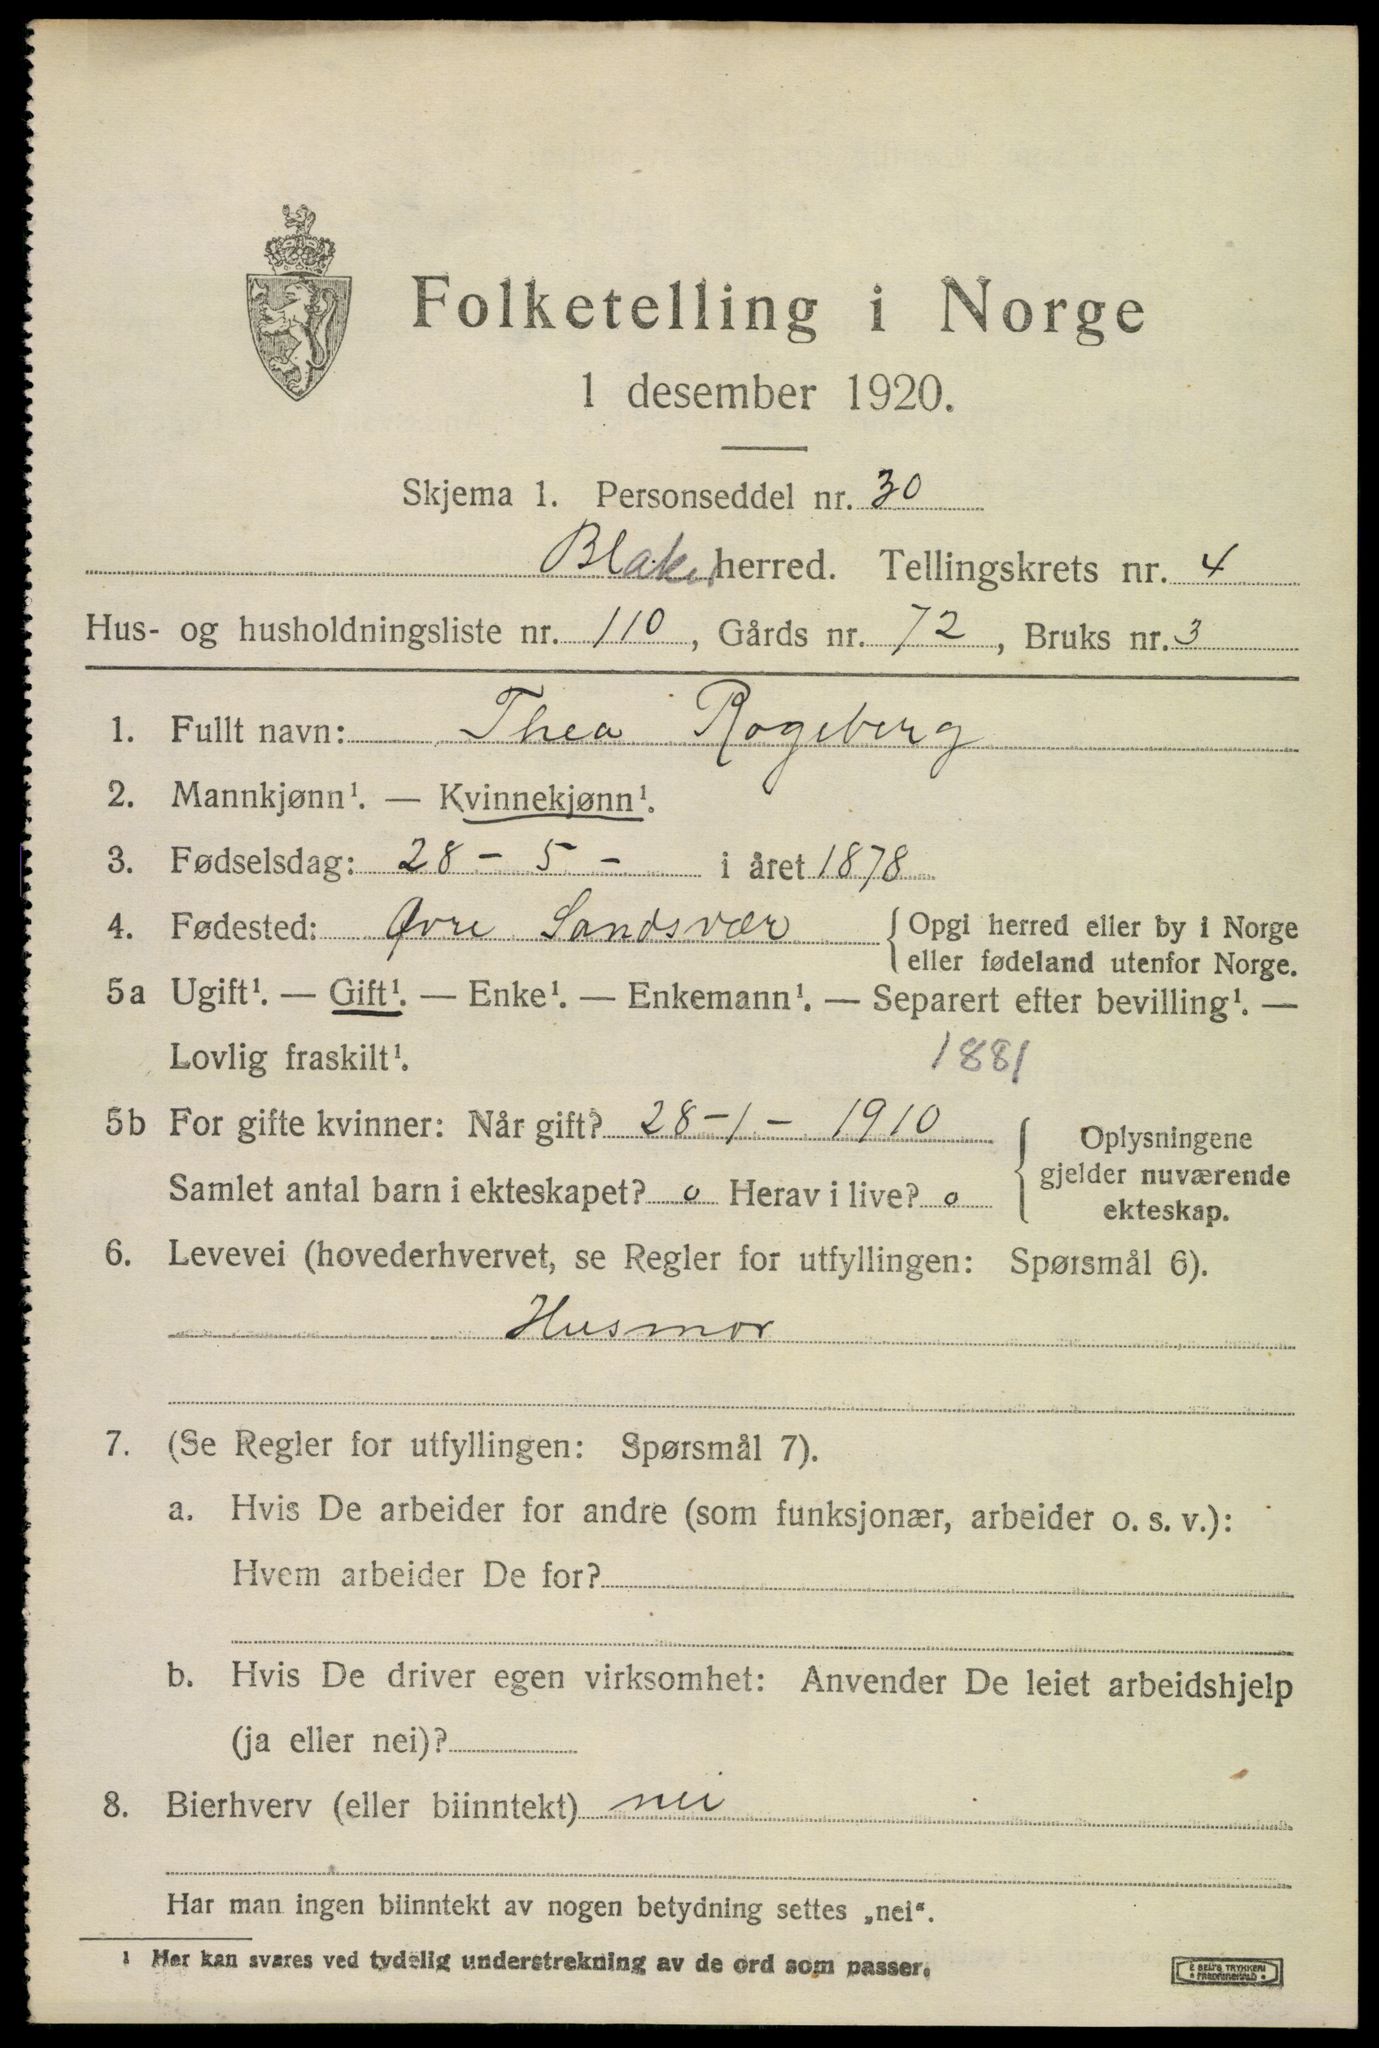 Folketelling i Norge
1 desember 1920.
Skjema 1. Personseddel nr. 30
Blaker herred. Tellingskrets nr. 4
Hus- og husholdningsliste nr. 110, Gårds nr. 72, Bruks nr. 3
1. Fullt navn: Thea Rogeberg
2. Mannkjønn¹. — Kvinnekjønn¹.
3. Fødselsdag: 28 - 5 - i året 1878
4. Fødested: Øvre Sandsvær { Opgi herred eller by i Norge
eller fødeland utenfor Norge.
5a Ugift¹. — Gift¹. — Enke¹. — Enkemann¹. — Separert efter bevilling¹. —
Lovlig fraskilt¹. 1881
5b For gifte kvinner: Når gift? 28-1- 1910 { Oplysningene
Samlet antal barn i ekteskapet? 0 Herav i live? 0 gjelder nuværende
ekteskap.
6. Levevei (hovederhvervet, se Regler for utfyllingen: Spørsmål 6).
Husmor
7. (Se Regler for utfyllingen: Spørsmål 7).
a. Hvis De arbeider for andre (som funksjonær, arbeider o. s. v.):
Hvem arbeider De for?
b. Hvis De driver egen virksomhet: Anvender De leiet arbeidshjelp
(ja eller nei)?
8. Bierhverv (eller biinntekt) nei
Har man ingen biinntekt av nogen betydning settes „nei“.
¹ Her kan svares ved tydelig understrekning av de ord som passer.
E SEM'S TRYKKERI
FREDRIKSHALD